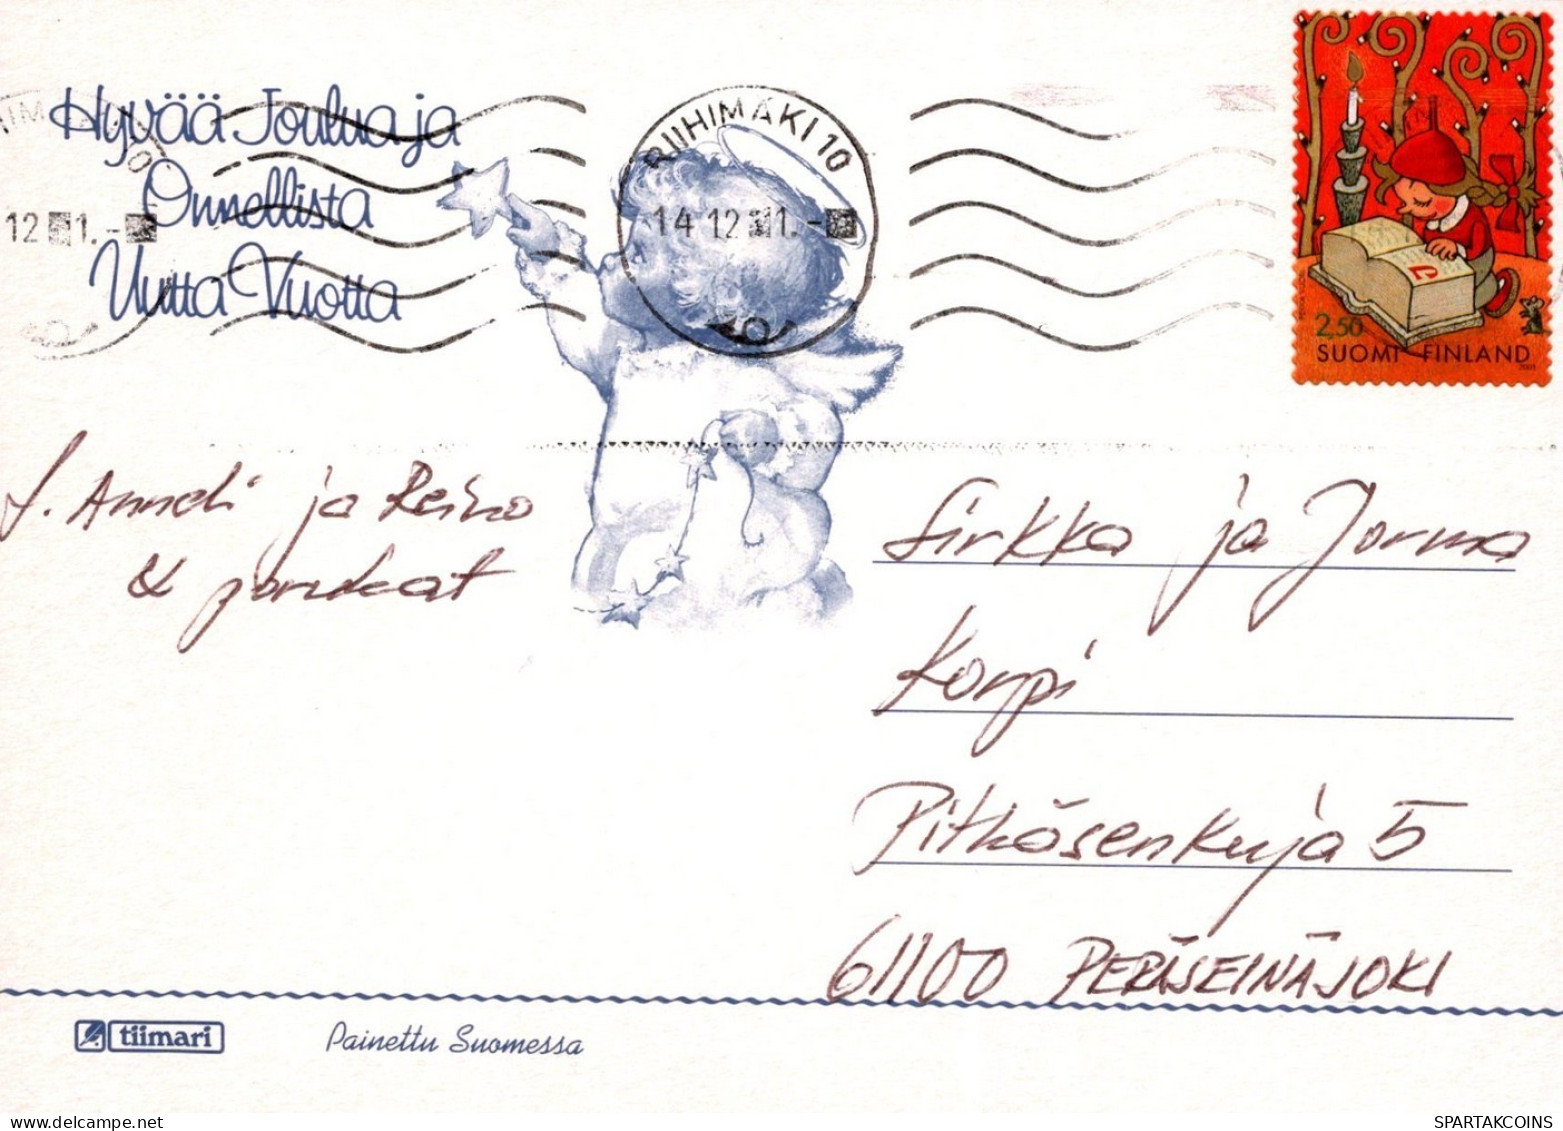 Hyvää Joulua ja
Onnellista
Uutta Vuotta
RIIHIMÄKI 10
14 12 1.-
12 1.-
10
2,50
SUOMI FINLAND
2001
T. Anneli ja Reino
&
Sirkka ja Jorma
Korpi
Pitkäsenkuja 5
61100 PERÄSEINÄJOKI
tiimari
Painettu Suomessa
SPARTAKCOINS